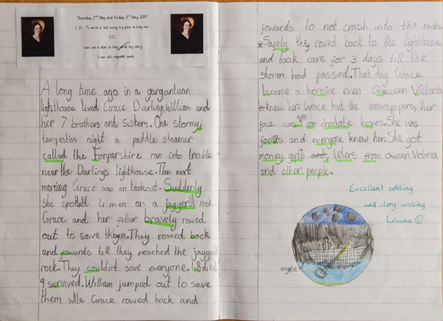 Thursday 2nd May and Friday 3rd May 2019
A long time ago in a gargantuan
lighthouse lived Grace Darling, William and
her 7 brothers and sisters. One stormy
tempestos night a paddle steamer
called the Forgarshire ran into trouble
near the Darlings lighthouse. The next
morning Grace was on lookout. Suddenly
she spotted 4 men on a jaggerd rock.
Grace and her father bravely rowed
out to save them. They rowed back
and fowards till they reached the jagged
rock. They couldnt save everyone.
9 survived. William jumped out to save
them while Grace rowed back and
fowards to not crash into the rocks
Safely they rowed back to the lighthouse
and took care for 3 days till the
storm had passed. That day Grace
became a heroine even Queen Victoria
knew her. Grace hit the newspapers, her
face was on choclate boxes. She was
famous and everyone knew her. She got
money, gifts and letters from Queen Victoria
and other people.
Excellent editing
and story writing